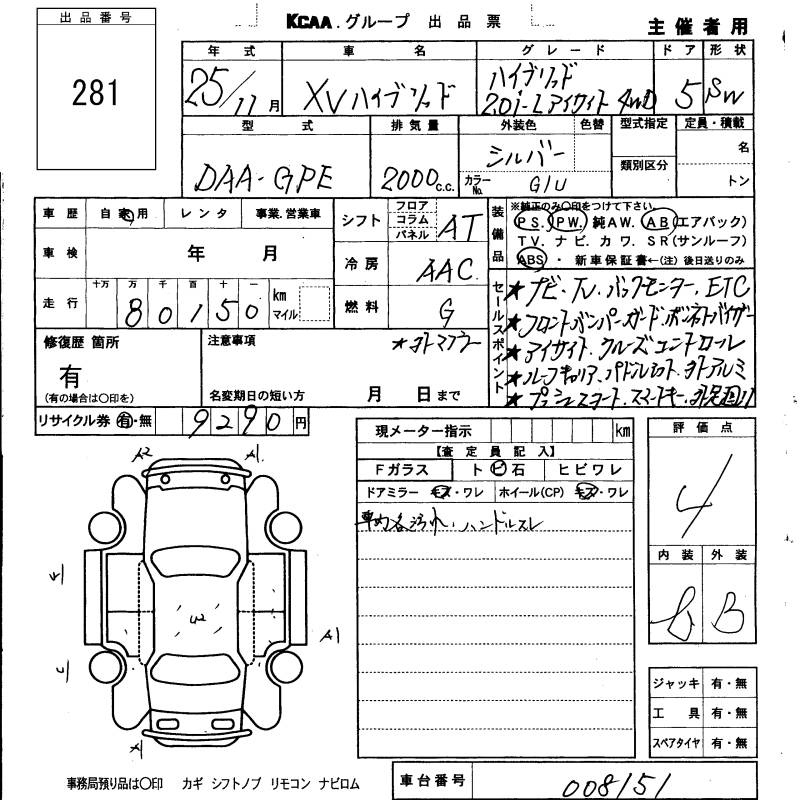 出品番号
281
KCAA.グループ 出品票
主催者用
年式 車名 グレード ドア 形状
25/11月 XVハイブリッド ハイブリッド 2.0i-Lアイサイト 4WD 5 SW
型式 排気量 外装色 色替 型式指定 定員・積載
DAA-GPE 2000c.c. シルバー 名
カラーNo. G1U 類別区分 トン
車歴 自家用 レンタ 事業.営業車
車検 年 月
走行 十万 万 千 百 十 一
80150 km マイル
シフト フロア コラム パネル AT
冷房 AAC
燃料 G
装備品
※純正のみ〇印をつけて下さい。
P S. P W. 純A W. A B(エアバック)
T V. ナ ビ. カ ワ. S R(サンルーフ)
ABS・新車保証書←(注)後日送りのみ
セールスポイント
★ナビ・TV.バックモニター.ETC
★フロントバンパーガード.ボンネットバイザー
★アイサイト.クルーズコントロール
★ルーフキャリア.パドルシフト.ヨトアルミ
★プッシュスタート.スマートキー.
修復歴 箇所
有
(有の場合は〇印を)
注意事項 ★ヨトマフラー
名変期日の短い方 月 日まで
リサイクル券 有・無 9290円
現メーター指示 km
【査定員記入】
Fガラス トビ石 ヒビワレ
ドアミラー キズ・ワレ ホイール(CP) キズ・ワレ
車内各汚れ.ハンドルスレ
評価点
4
内装 外装
B B
A2 A1
U2
A1
ジャッキ 有・無
工具 有・無
スペアタイヤ 有・無
事務局預り品は〇印 カギ シフトノブ リモコン ナビロム
車台番号 008151